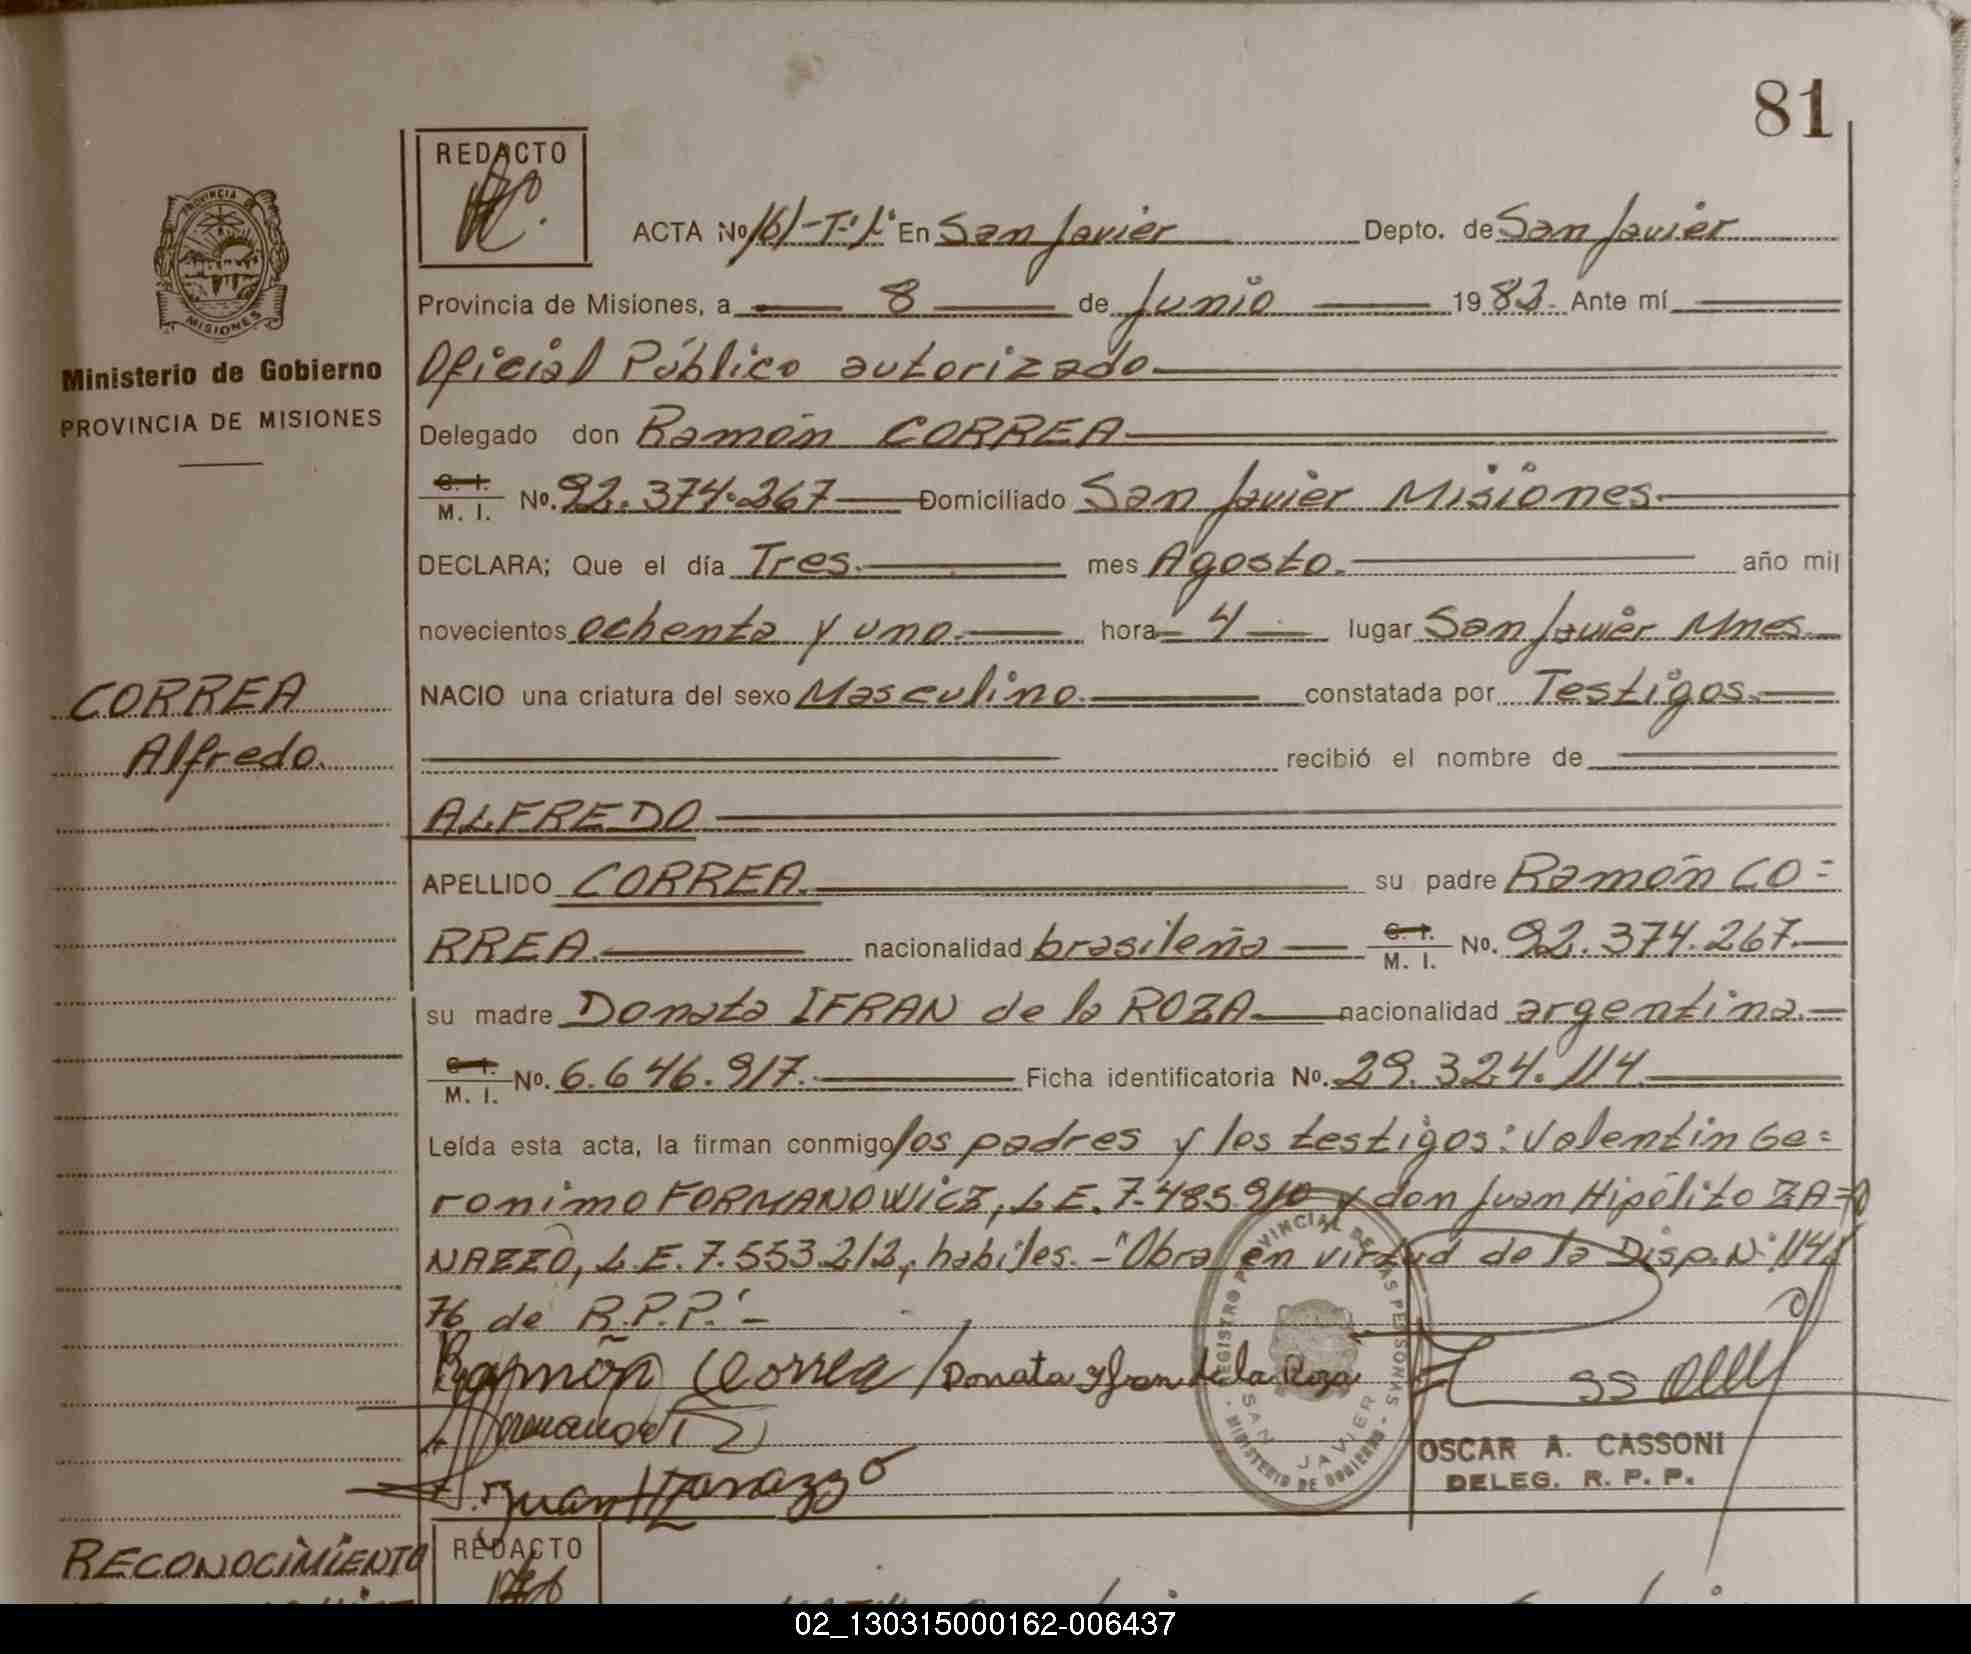 81
REDACTO
ACTA No 161-T.1º En San Javier Depto. de San Javier
Provincia de Misiones, a 8 de Junio 1983. Ante mí
Oficial Público autorizado
Delegado don Ramón CORREA
C. I. M. I. No. 92.374.267 Domiciliado San Javier Misiones.
DECLARA; Que el día Tres. mes Agosto. año mil
novecientos ochenta y uno. hora 4 lugar San Javier Mnes.
NACIO una criatura del sexo Masculino. constatada por Testigos.
recibió el nombre de
ALFREDO
APELLIDO CORREA. su padre Ramón CO=
RREA. nacionalidad brasileña C. I. M. I. No. 92.374.267.
su madre Donata IFRAN de la ROZA nacionalidad argentina.
C. I. M. I. No. 6.646.917. Ficha identificatoria No. 29.324.114
Leída esta acta, la firman conmigo los padres y los testigos: Valentin Ge=
ronimo FORMANOWICZ, L.E. 7.485.910 y don Juan Hipólito ZA=
NAZZO, L.E. 7.553.212, habiles.- "Obra en virtud de la Disp. Nº 114/
76 de R.P.P."-
Ramón Correa Donata Ifran de la Roza
Juan H Zanazzo
OSCAR A. CASSONI
DELEG. R. P. P.
REGISTRO PROVINCIAL DE LAS PERSONAS
SAN JAVIER
MINISTERIO DE GOBIERNO
PROVINCIA DE
MISIONES
Ministerio de Gobierno
PROVINCIA DE MISIONES
CORREA
Alfredo.
RECONOCIMIENTO
REDACTO
02_130315000162-006437